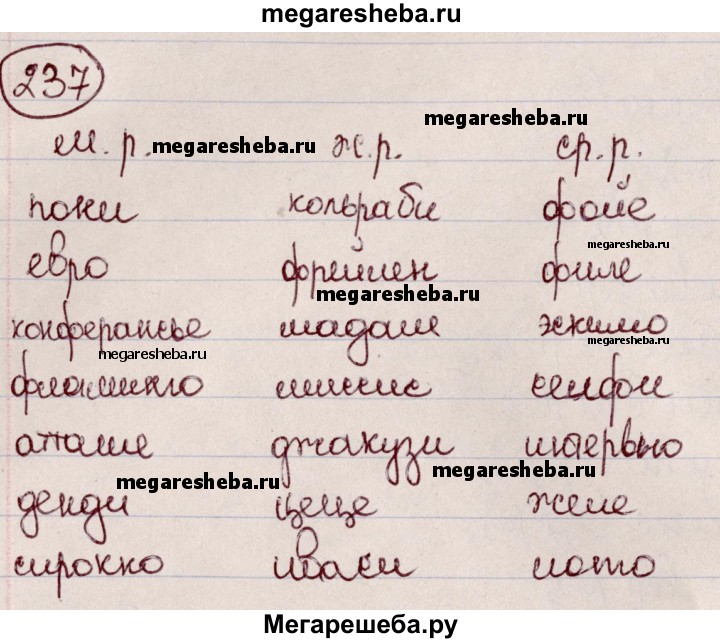 megaresheba.ru
237
megaresheba.ru
м. р. megaresheba.ru ж. р. ср. р.
пони кольраби фойе
megaresheba.ru
евро фрейлен филе
megaresheba.ru
конферансье мадам эскимо
megaresheba.ru megaresheba.ru
фламинго миссис селфи
атташе джакузи интервью
megaresheba.ru megaresheba.ru
денди цеце желе
megaresheba.ru
сирокко иваси лото
Мегарешеба.ру